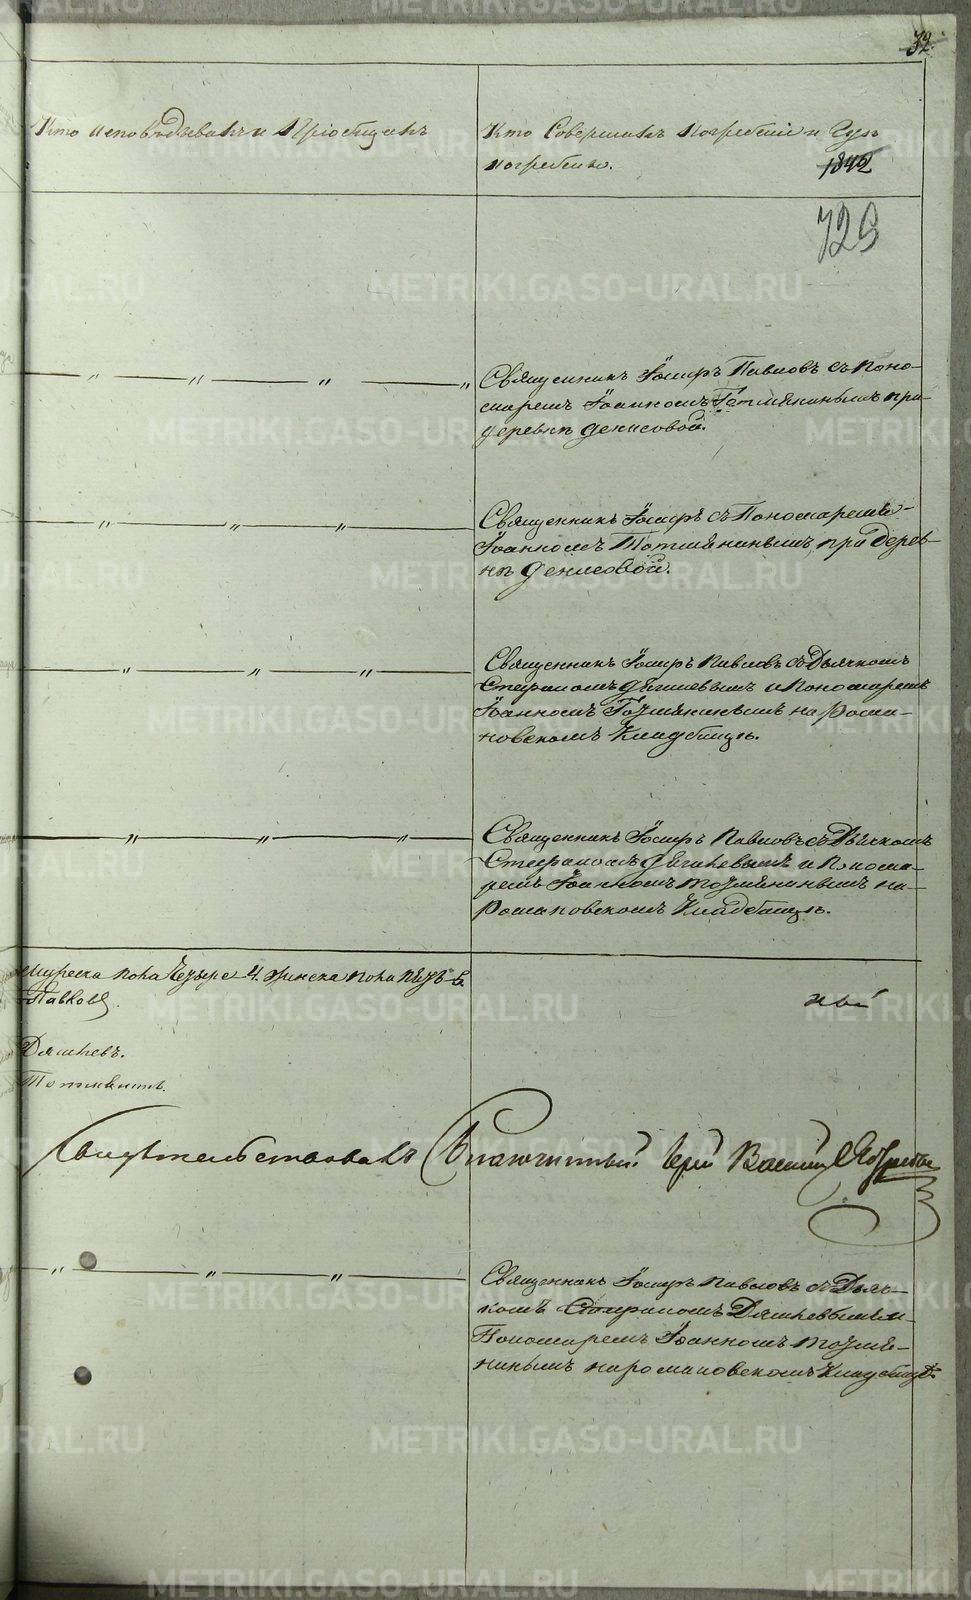 32.
Кто исповѣдывалъ и Пріобщалъ
Кто Совершалъ погребеніе и Гдѣ
погребены.
1842
729
Священникъ Іосифъ Павловъ съ Поно-
маремъ Іоанномъ Тотмянинымъ при
деревнѣ Денисовой.
Священникъ Іосифъ съ Пономаремъ
Іоанномъ Тотмянинымъ, при Дерев-
нѣ Денисовой.
Священникъ Іосифъ Павловъ съ Дьячкомъ
Стефаномъ и Пономаремъ
Іоанномъ Тотмянинымъ на Рома-
новскомъ Кладбищѣ.
Священникъ Іосифъ Павловъ съ Дьячкомъ
Стефаномъ и Понома-
ремъ Іоанномъ Тотмянинымъ на
Романовскомъ Кладбищѣ.
мужеска пола Четыре 4. женска пола пять 5.
Павловъ
ный
Дягилевъ.
Тотмянинъ.
Свидѣтельствовалъ Благочинный Іерей Василій
Священникъ Іосифъ Павловъ съ Дьяч-
комъ Стефаномъ Дягилевымъ и
Пономаремъ Іоанномъ Тотмя-
нинымъ на романовскомъ Кладбищѣ.
METRIKI.GASO-URAL.RU